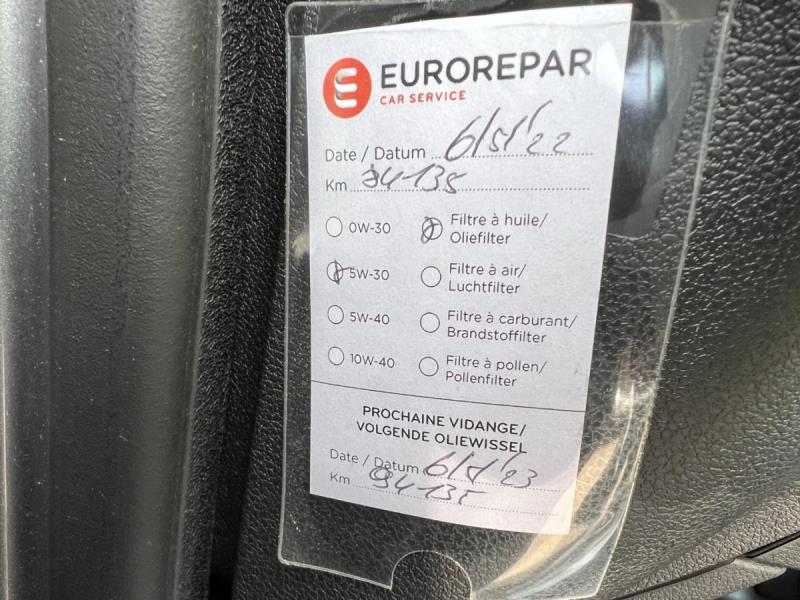 EUROREPAR
CAR SERVICE
Date / Datum 6/5/22
Km
0W-30
Filtre à huile/
Oliefilter
5W-30
Filtre à air/
Luchtfilter
5W-40
Filtre à carburant/
Brandstoffilter
10W-40
Filtre à pollen/
Pollenfilter
PROCHAINE VIDANGE/
VOLGENDE OLIEWISSEL
Date / Datum 6/5/23
Km